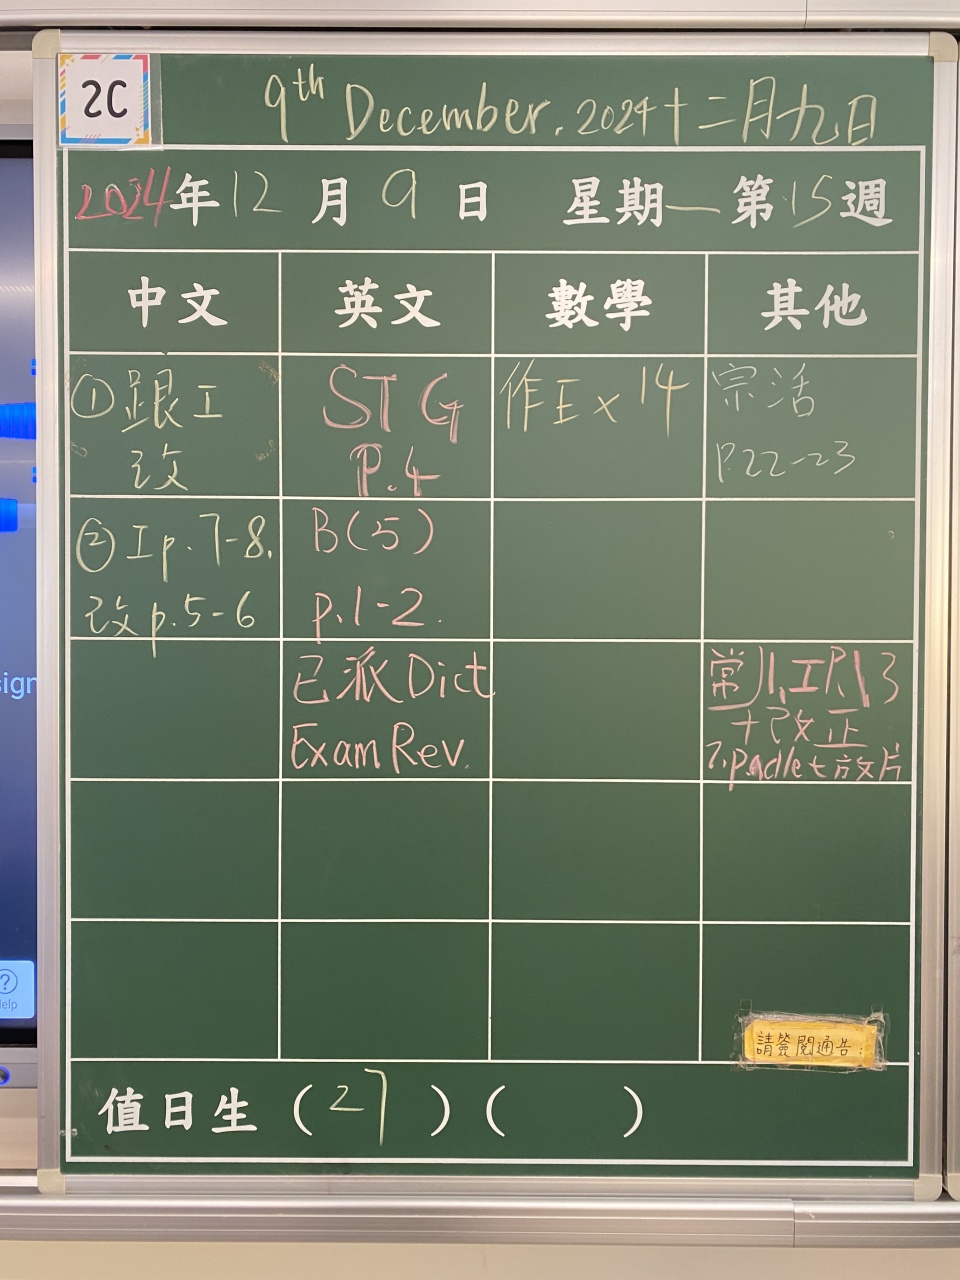 2C
9th December. 2024 十二月九日
2024年12月9日 星期一 第15週
中文 英文 數學 其他
①跟工
改
STG
P.4
作Ex14
宗活
P.22-23
②工p.7-8.
改p.5-6
B(5)
p.1-2.
已派Dict
Exam Rev.
+改正
Padlet放片
請簽閱通告:
值日生(27)( )
sign
?
Help